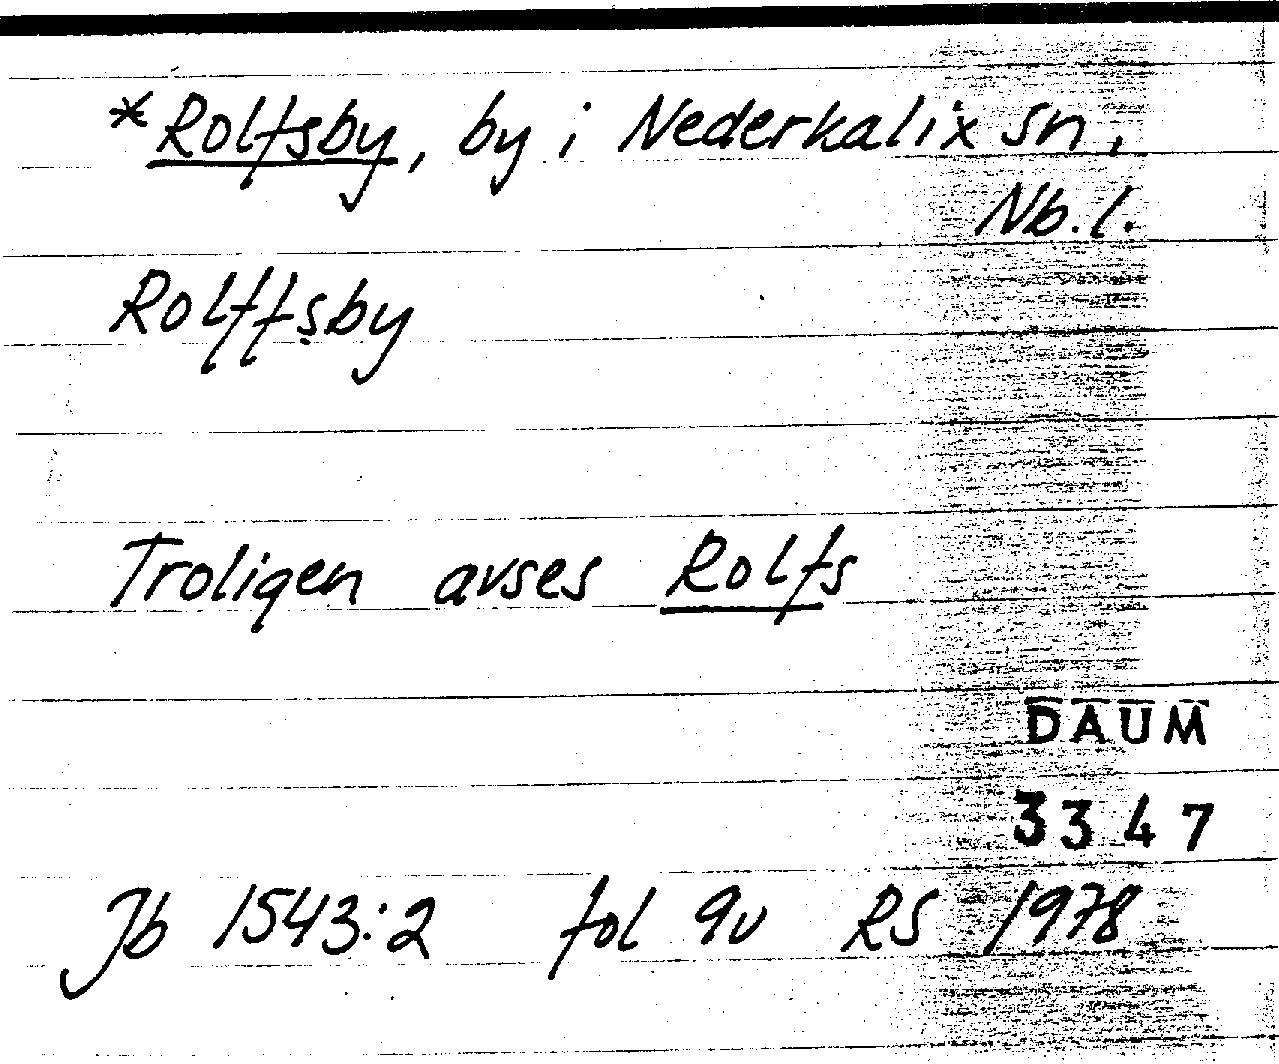 *Rolfsby, by i Nederkalix sn,
Nb.l.
Rolffsby
Troligen avses Rolfs
DAUM
3347
Jb 1543:2 fol 9v RS 1978